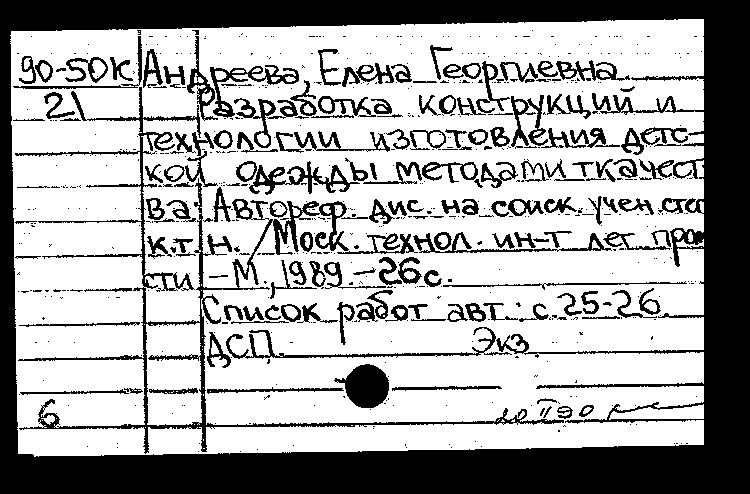 90-50к Андреева, Елена Георгиевна
21 Разработка конструкций и
технологии изготовления детс-
кой одежды методами ткачест
ва: Автореф. дис. на соиск. учен. степ
к.т.н. / Моск. технол. ин-т лег. пром
сти. – М., 1989. – 26 с.
Список работ авт.: с. 25-26.
ДСП. Экз.
6 20 II 90